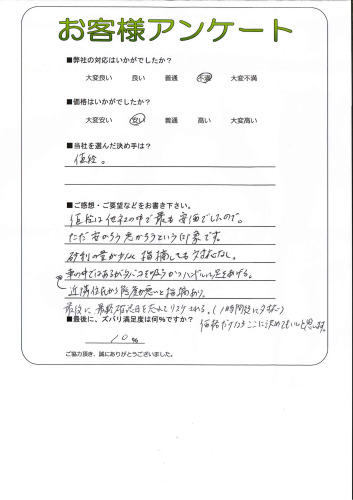 お客様アンケート
■弊社の対応はいかがでしたか？
大変良い 良い 普通 不満 大変不満
■価格はいかがでしたか？
大変安い 安い 普通 高い 大変高い
■当社を選んだ決め手は？
値段。
■ご感想・ご要望などをお書き下さい。
値段は他社の中で最も安価でしたので。
ただ安かろう悪かろうという印象です。
砂利の量が少なく指摘しても対応なし。
車の中ではあるがタバコを吸うかつハンドルに足をあげる。
近隣住民から態度が悪いと指摘あり。
最後に最終確認日を忘れてリスケされる。(1時間後に対応)
■最後に、ズバリ満足度は何％ですか？
価格だけならここに決めてもいいと思います。
10％
ご協力頂き、誠にありがとうございました。